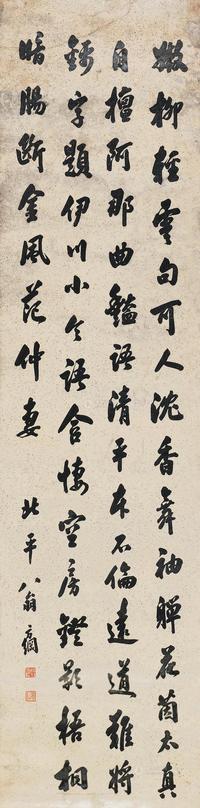 嫩柳輕雲句可人沈香舞袖嚲花茵太真
自擅阿那曲豔語清平本不倫遠道難將
錦字題伊川小令語含悽空房鐙影梧桐
暗腸斷金風范仲妻 北平翁方綱